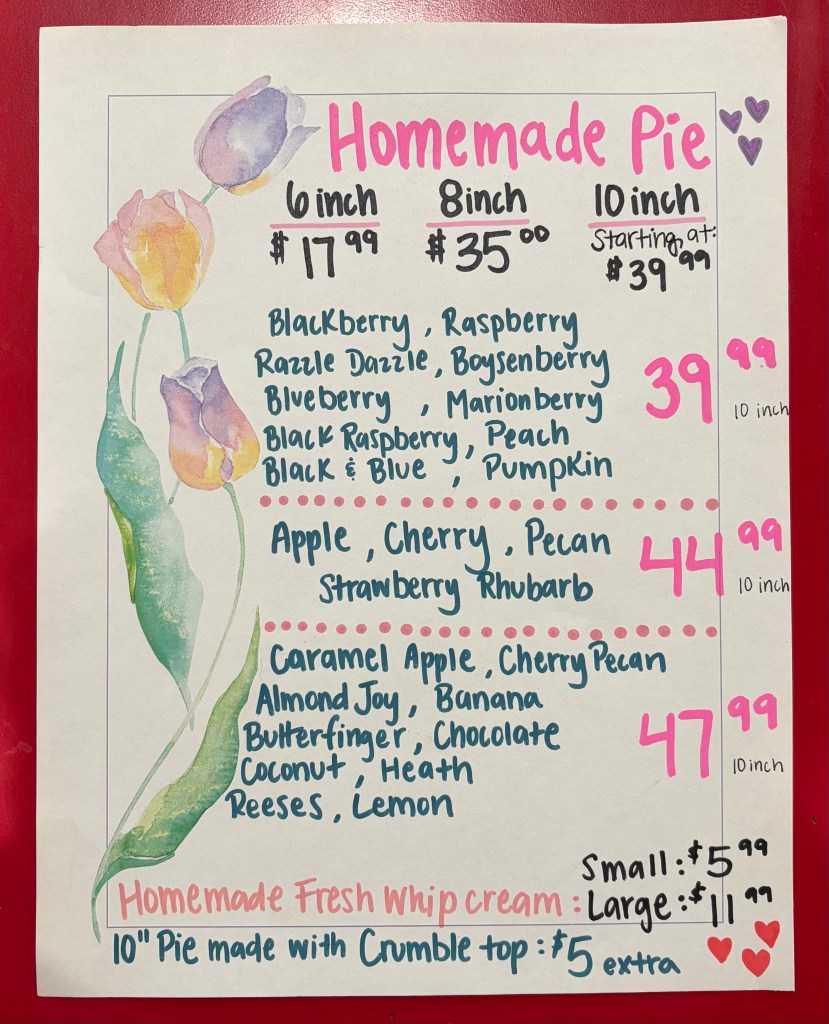 Homemade Pie
6 inch 8 inch 10 inch
$17.99 $35.00 Starting at: $39.99
Blackberry, Raspberry
Razzle Dazzle, Boysenberry
Blueberry, Marionberry
39.99
10 inch
Black Raspberry, Peach
Black & Blue, Pumpkin
Apple, Cherry, Pecan
44.99
10 inch
Strawberry Rhubarb
Caramel Apple, Cherry Pecan
Almond Joy, Banana
Butterfinger, Chocolate
47.99
10 inch
Coconut, Heath
Reeses, Lemon
Small: $5.99
Homemade Fresh Whip cream: Large: $11.99
10" Pie made with Crumble top: $5 extra